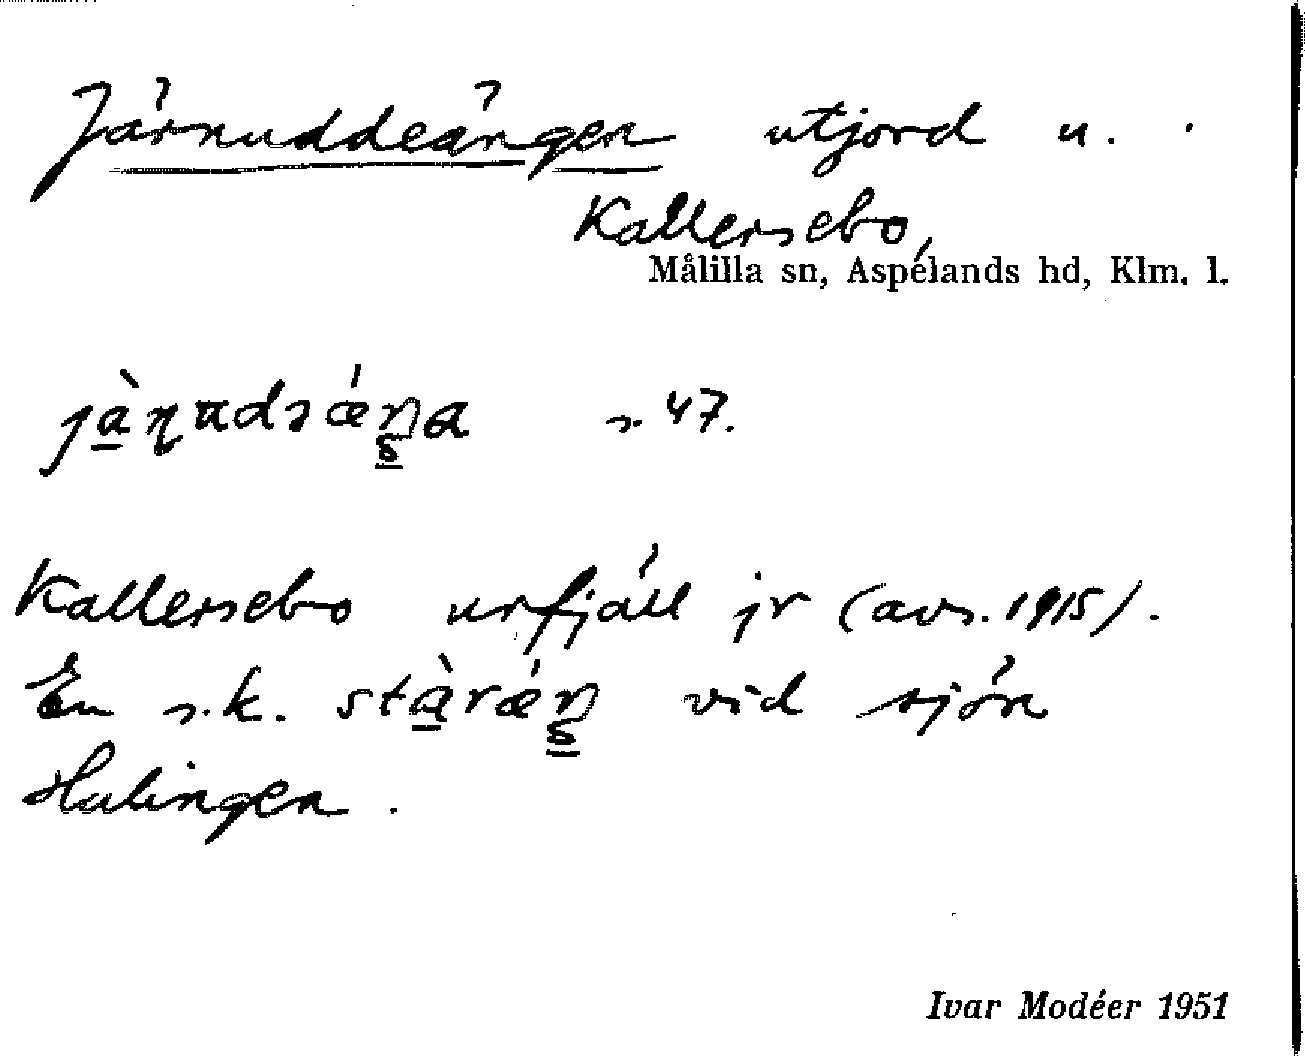 Järnuddeängen utjord u.
Kallersebo,
Målilla sn, Aspelands hd, Klm. l.
jà̱ɳudɜǽŋa s. 47.
Kallersebo urfjäll jr (avs. 1915).
En s.k. stà̱rǽŋ vid sjön
Hulingen.
Ivar Modéer 1951